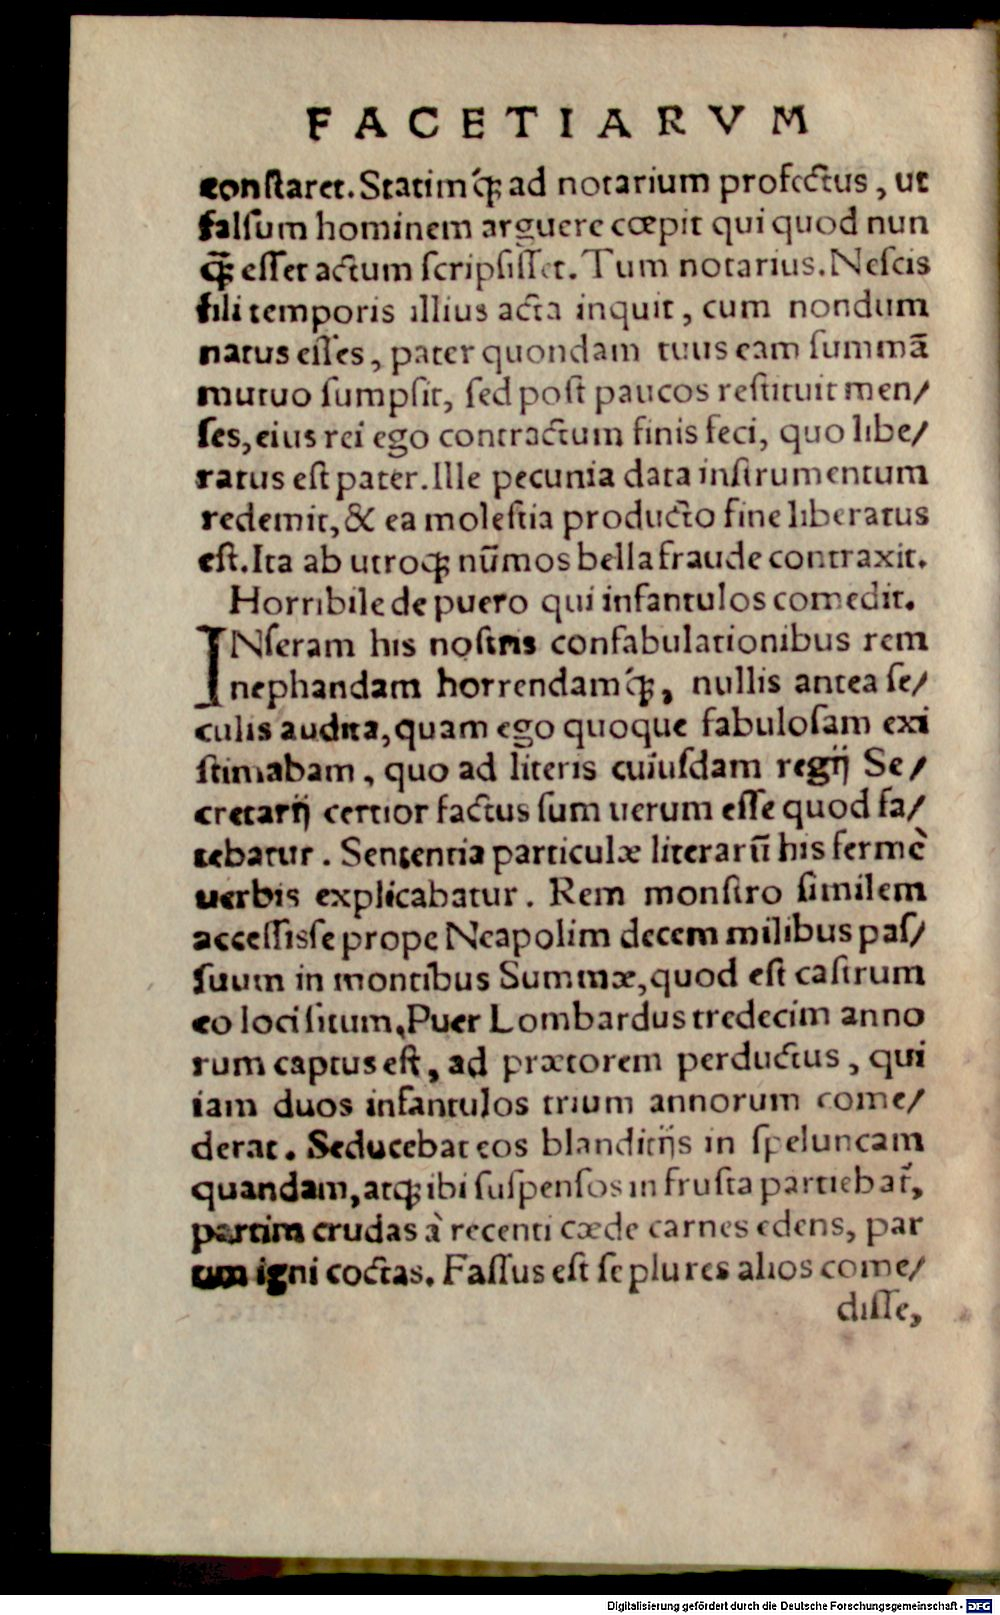 FACETIARVM
conſtaret. Statimq́ꝫ ad notarium profectus, ut
falſum hominem arguere cœpit qui quod nun
ꝗ̃ꝫ eſſet actum ſcripſiſſet. Tum notarius. Neſcis
fili temporis illius acta inquit, cum nondum
natus eſſes, pater quondam tuus eam ſummã
mutuo ſumpſit, ſed poſt paucos reſtituit men/
ſes, eius rei ego contractum finis feci, quo libe/
ratus eſt pater. Ille pecunia data inſtrumentum
redemit, & ea moleſtia producto fine liberatus
eſt. Ita ab utroqꝫ nũmos bella fraude contraxit.
Horribile de puero qui infantulos comedit.
INſeram his noſtris confabulationibus rem
nephandam horrendamq́ꝫ, nullis antea ſe/
culis audita, quam ego quoque fabuloſam exi
ſtimabam, quo ad literis cuiuſdam regij Se/
cretarij certior factus ſum uerum eſſe quod fa/
tebatur. Sententia particulæ literarũ his fermè
uerbis explicabatur. Rem monſtro ſimilem
acceſſiſſe prope Neapolim decem milibus paſ/
ſuum in montibus Summæ, quod eſt caſtrum
eo loci ſitum. Puer Lombardus tredecim anno
rum captus eſt, ad prætorem perductus, qui
iam duos infantulos trium annorum come/
derat. Seducebat eos blanditijs in ſpeluncam
quandam, atqꝫ ibi ſuſpenſos in fruſta partiebat̃,
partim crudas à recenti cæde carnes edens, par
tim igni coctas. Faſſus eſt ſe plures alios come/
diſſe,
Digitalisierung gefördert durch die Deutsche Forschungsgemeinschaft - DFG